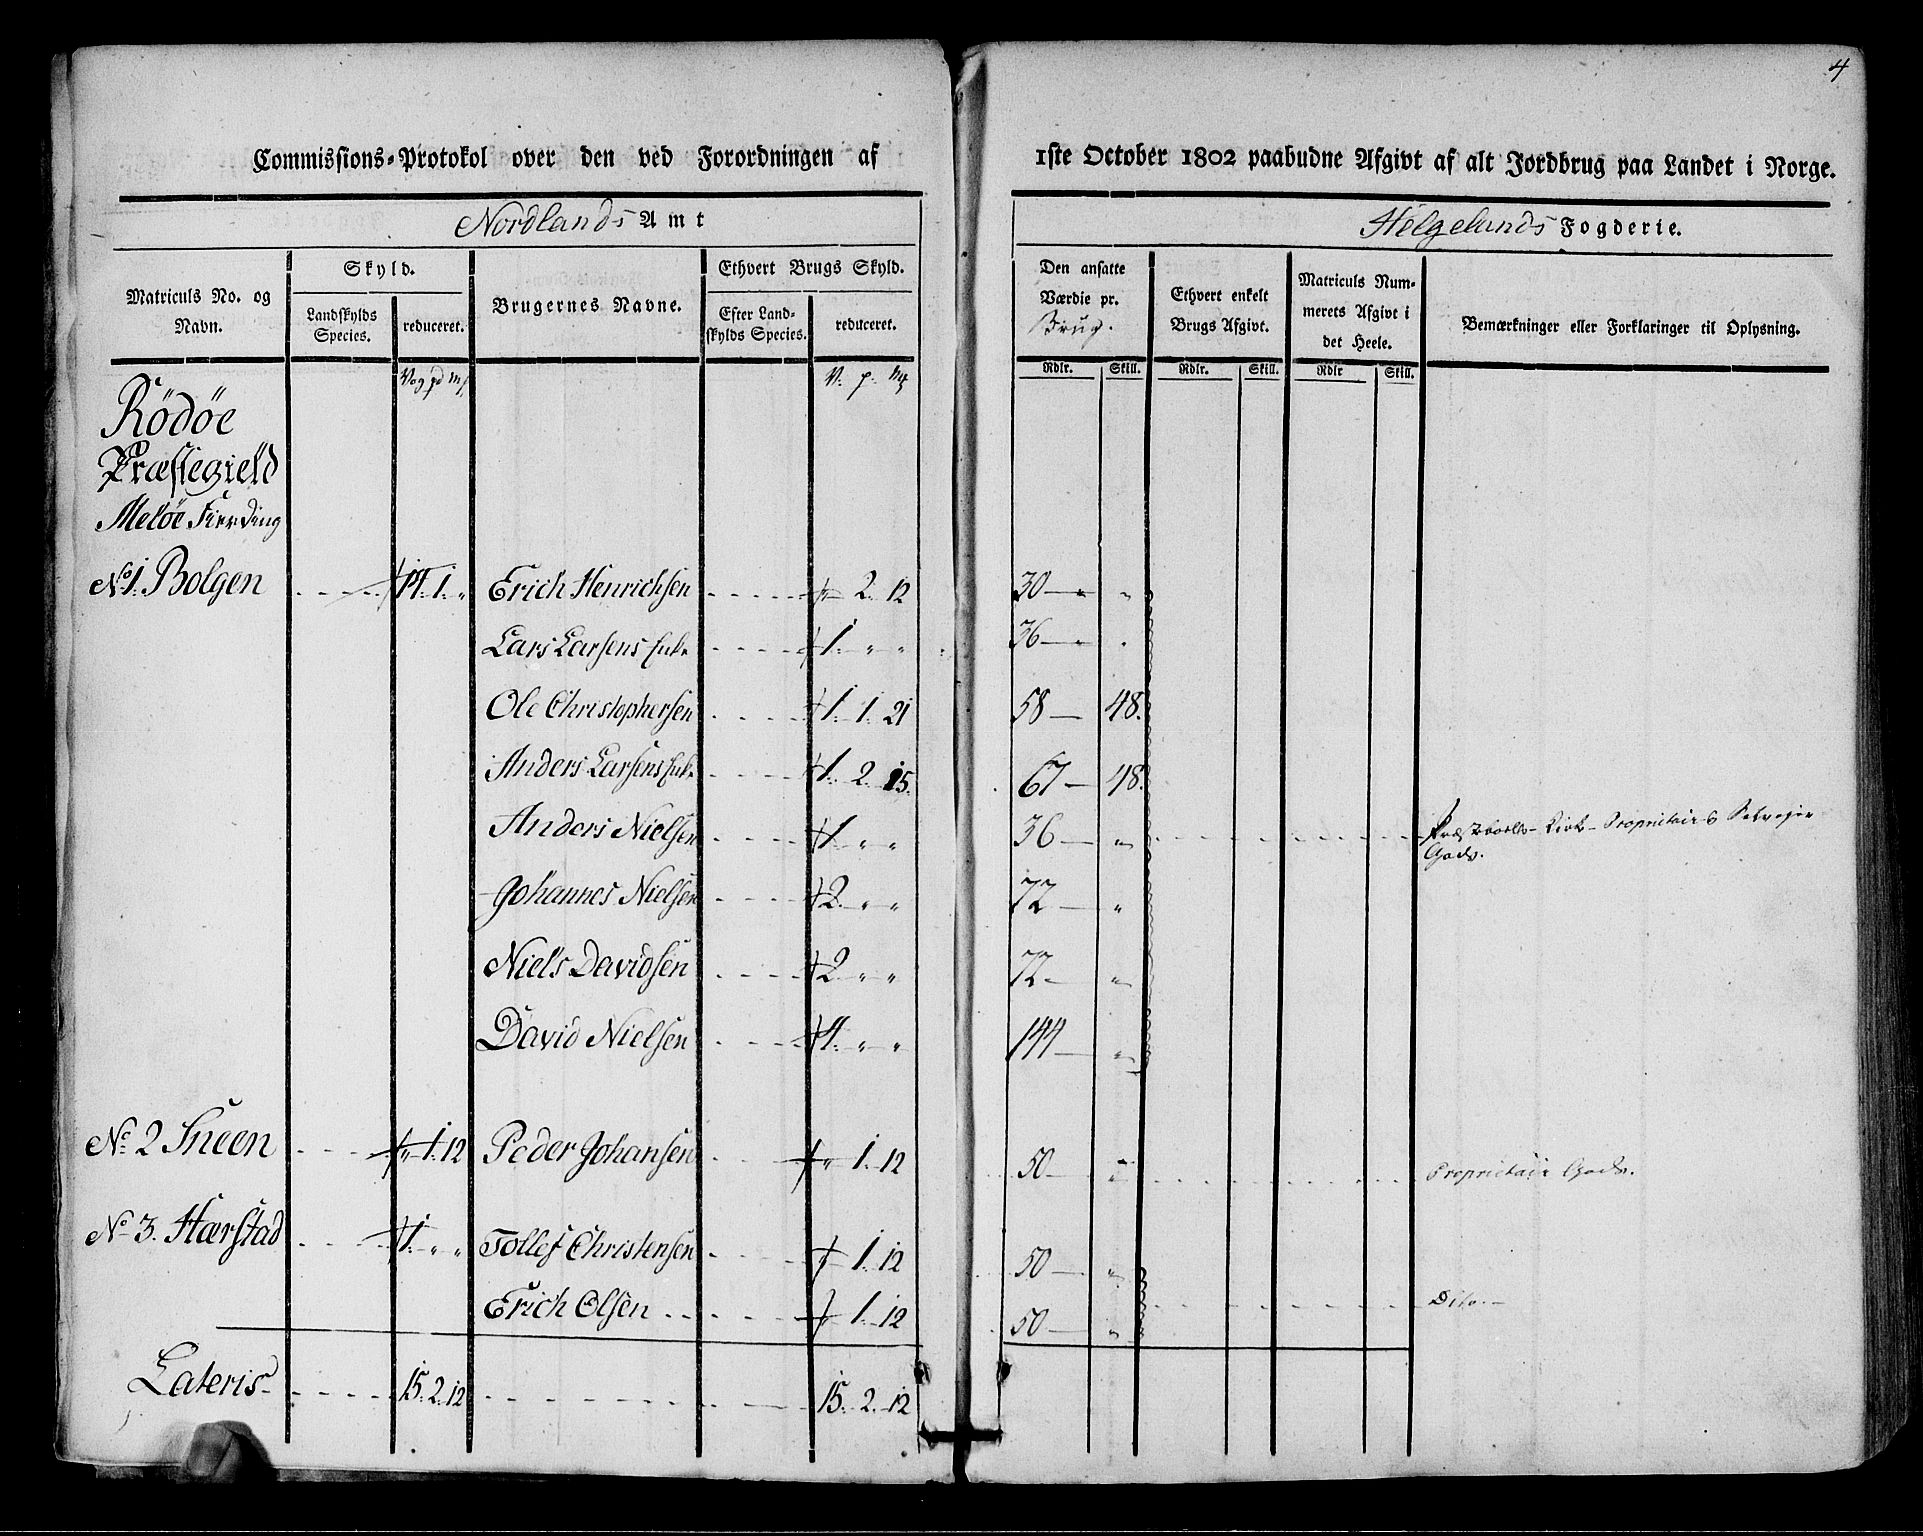 4
Commissions-Protokol over den ved Forordningen af 1ste October 1802 paabudne Afgivt af alt Jordbrug paa Landet i Norge.
Nordlands Amt Helgelands Fogderie.
Matriculs No. og Navn.
Skyld.
Landskylds Species.
reduceret.
Brugernes Navne.
Ethvert Brugs Skyld.
Efter Landskylds Species.
reduceret.
Den ansatte Værdie pr. Brug.
Ethvert enkelt Brugs Afgivt.
Matriculs Nummerets Afgivt i det Heele.
Bemærkninger eller Forklaringer til Oplysning.
Vog pd mk V. p. mk Rdlr. Skill. Rdlr. Skill. Rdlr Skill.
Rödöe
Præstegield
Meløe Fierding
No 1. Bolgen 14. 1. " Erich Henrichsen " 2. 12 30 "
Lars Larsens Enke 1. " " 36 "
Ole Christophersen 1. 1. 21 58 48.
Anders Larsens Enke 1. 2. 15. 67 48.
Anders Nielsen 1. " " 36 " Præstebolets- Kirke- Proprietair & Selveyer
Gods.
Johannes Nielsen 2. " " 72 "
Niels Davidsen 2. " " 72 "
David Nielsen 4. " " 144 "
No 2 Sneen " 1. 12 Peder Johansen " 1. 12 50 " Proprietair Gods.
No 3. Hærstad 1. " " Tollef Christensen " 1. 12 50 "
Erich Olsen " 1. 12 50 " Dito.
Lateris 15. 2. 12 15. 2. 12